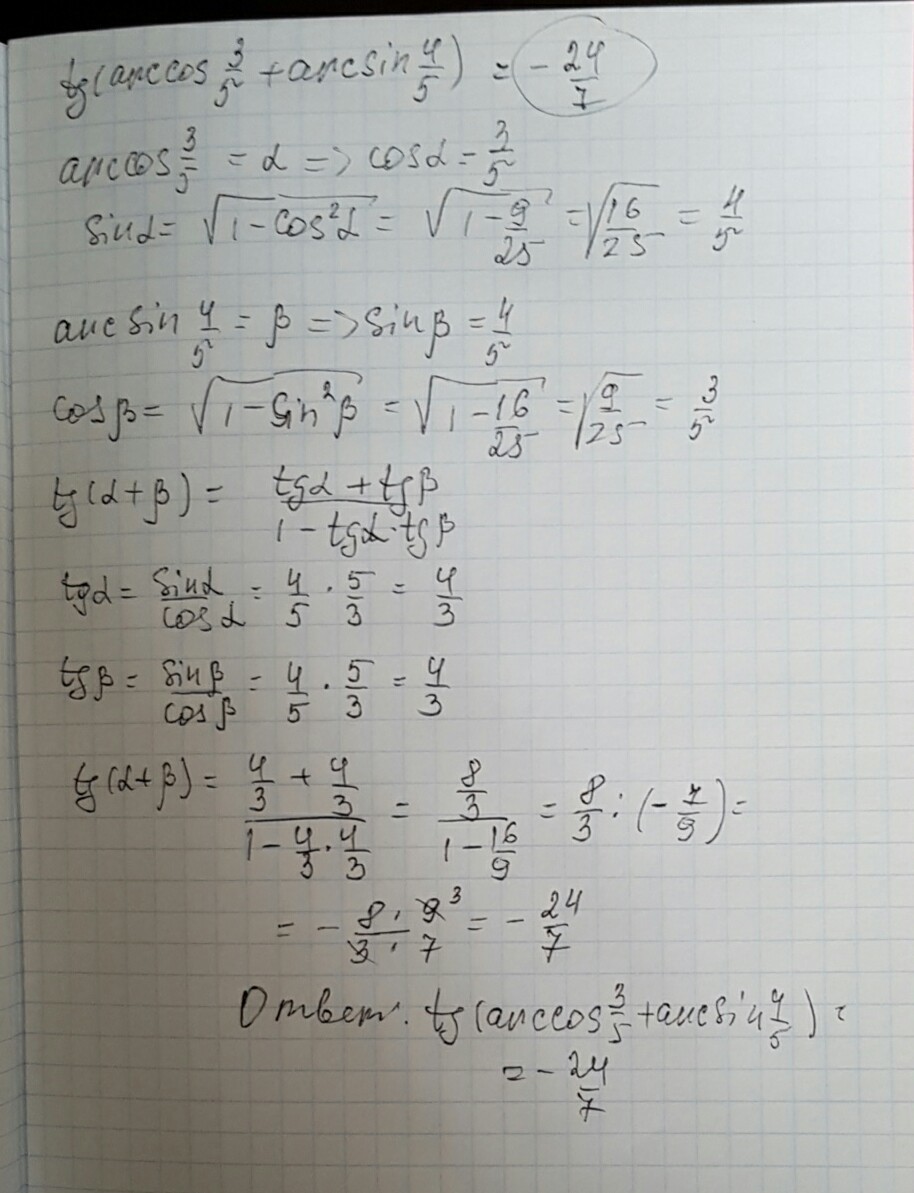 tg(arccos 3/5 + arcsin 4/5) = -24/7
arccos 3/5 = α => cosα = 3/5
sinα = √(1-cos²α) = √(1-9/25) = √(16/25) = 4/5
arcsin 4/5 = β => sinβ = 4/5
cosβ = √(1-sin²β) = √(1-16/25) = √(9/25) = 3/5
tg(α+β) = (tgα + tgβ)/(1-tgα·tgβ)
tgα = sinα/cosα = 4/5 · 5/3 = 4/3
tgβ = sinβ/cosβ = 4/5 · 5/3 = 4/3
tg(α+β) = (4/3 + 4/3)/(1-4/3·4/3) = (8/3)/(1-16/9) = 8/3 : (-7/9) =
= - (8·9³)/(3·7) = -24/7
Ответ. tg(arccos 3/5 + arcsin 4/5) =
= -24/7